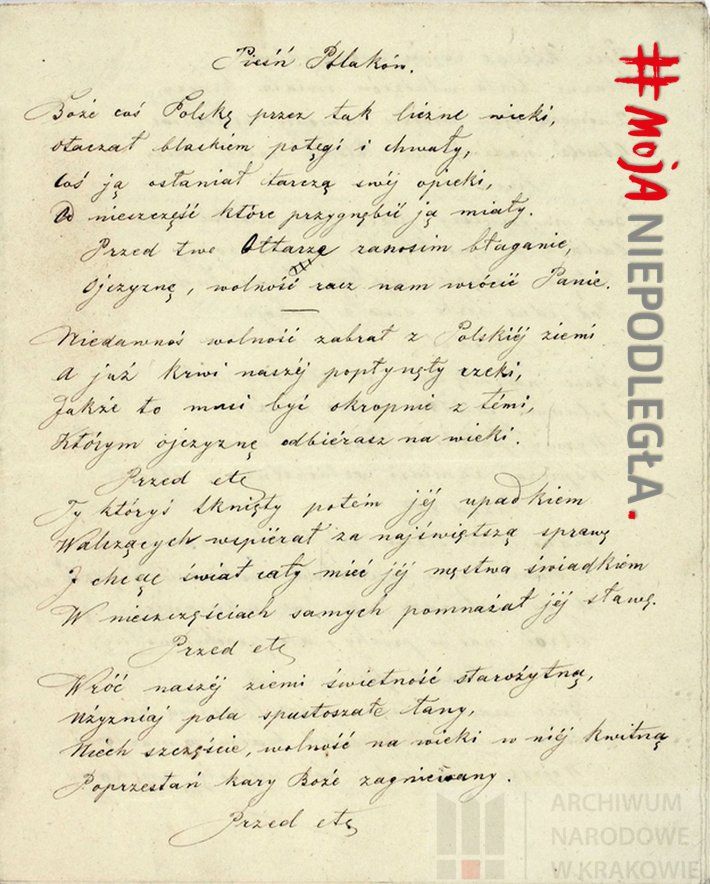 Pieśń Polaków.
Boże coś Polskę przez tak liczne wieki,
otaczał blaskiem potęgi i chwały,
Coś ją osłaniał tarczą swéj opieki,
Od nieszczęść które przygnębić ją miały.
Przed twe Ołtarze zanosim błaganie,
Ojczyznę, wolność racz nam wrócić Panie.
Niedawnoś wolność zabrał z Polskiéj ziemi
A już krwi naszéj popłynęły rzeki,
Jakże to musi być okropnie z témi,
Którym ojczyznę odbiérasz na wieki.
Przed etc
Ty któryś tknięty potém jéj upadkiem
Walczących wspiérał za najświętszą sprawę
I chcąc świat cały mieć jéj męstwa świadkiem
W nieszczęściach samych pomnażał jéj sławę.
Przed etc
Wróć naszéj ziemi świetność starożytną,
Użyzniaj pola spustoszałe łany,
Niech szczęście, wolność na wieki w niéj kwitną
Poprzestań kary Boże zagniewany.
Przed etc
#MOJA NIEPODLEGŁA.
ARCHIWUM
NARODOWE
W KRAKOWIE